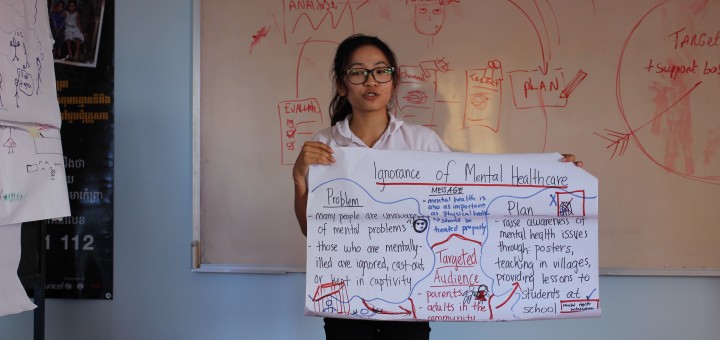 ANALYSE
EVALUATE
TARGET
PLAN
TARGET
+ support bas
1 112
unicef
Ignorance of Mental Healthcare
Problem
- many people are unaware
of mental problems
- those who are mentally-
illed are ignored, cast-out
or kept in captivity
MESSAGE
- mental health is
also as important
as physical health
- should be
treated properly
Targeted
Audience
- parents
- adults in the
community
Plan
- raise awareness of
mental health issues
through: posters,
teaching in villages,
providing lessons to
students at
school